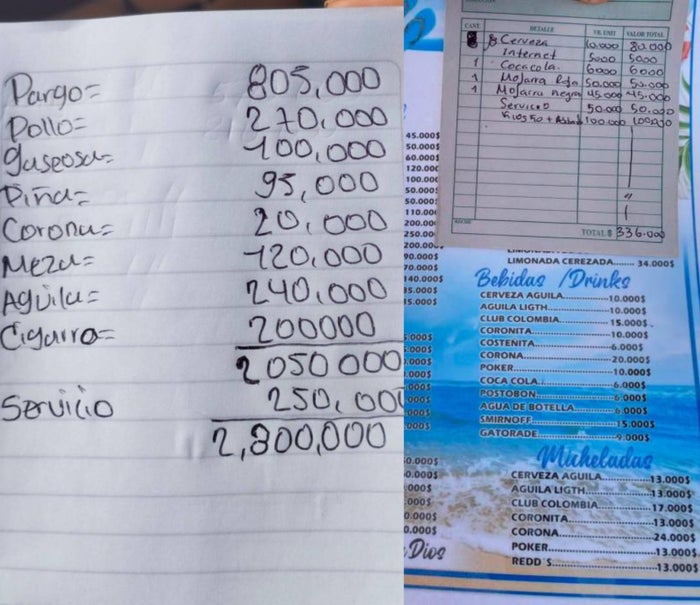 Pargo= 805,000
Pollo= 270,000
gaseosa= 100,000
Piña= 95,000
Corona= 20,000
Meza= 120,000
Aguila= 240,000
Cigarro= 200000
2050000
Servicio 250,000
2,800,000
CANT. DETALLE VR. UNIT VALOR TOTAL
8 Cerveza 10.000 80.000
Internet 5000 5000
1 Cocacola. 6000 6000
1 Mojarra Roja 50.000 50.000
1 Mojarra negra 45.000 45.000
Servicio 50.000 50.000
Kiosko + 100.000 100.000
TOTAL $ 336.000
45.000$
50.000$
60.000$
120.000
100.000
50.000$
50.000$
110.000
200.000
250.000
200.000
90.000$
70.000$
140.000$
85.000$
15.000$
LIMONADA CEREZADA....... 34.000$
Bebidas /Drinks
CERVEZA AGUILA..............10.000$
AGUILA LIGTH..................10.000$
CLUB COLOMBIA..............15.000$
CORONITA.......................10.000$
COSTENITA......................6.000$
CORONA..........................20.000$
POKER.............................10.000$
COCA COLA......................6.000$
POSTOBON......................6.000$
AGUA DE BOTELLA............6.000$
SMIRNOFF.......................15.000$
GATORADE......................9.000$
Micheladas
CERVEZA AGUILA..............13.000$
AGUILA LIGTH..................13.000$
CLUB COLOMBIA..............17.000$
CORONITA.......................13.000$
CORONA..........................24.000$
POKER.............................13.000$
REDD´S............................13.000$
Dios